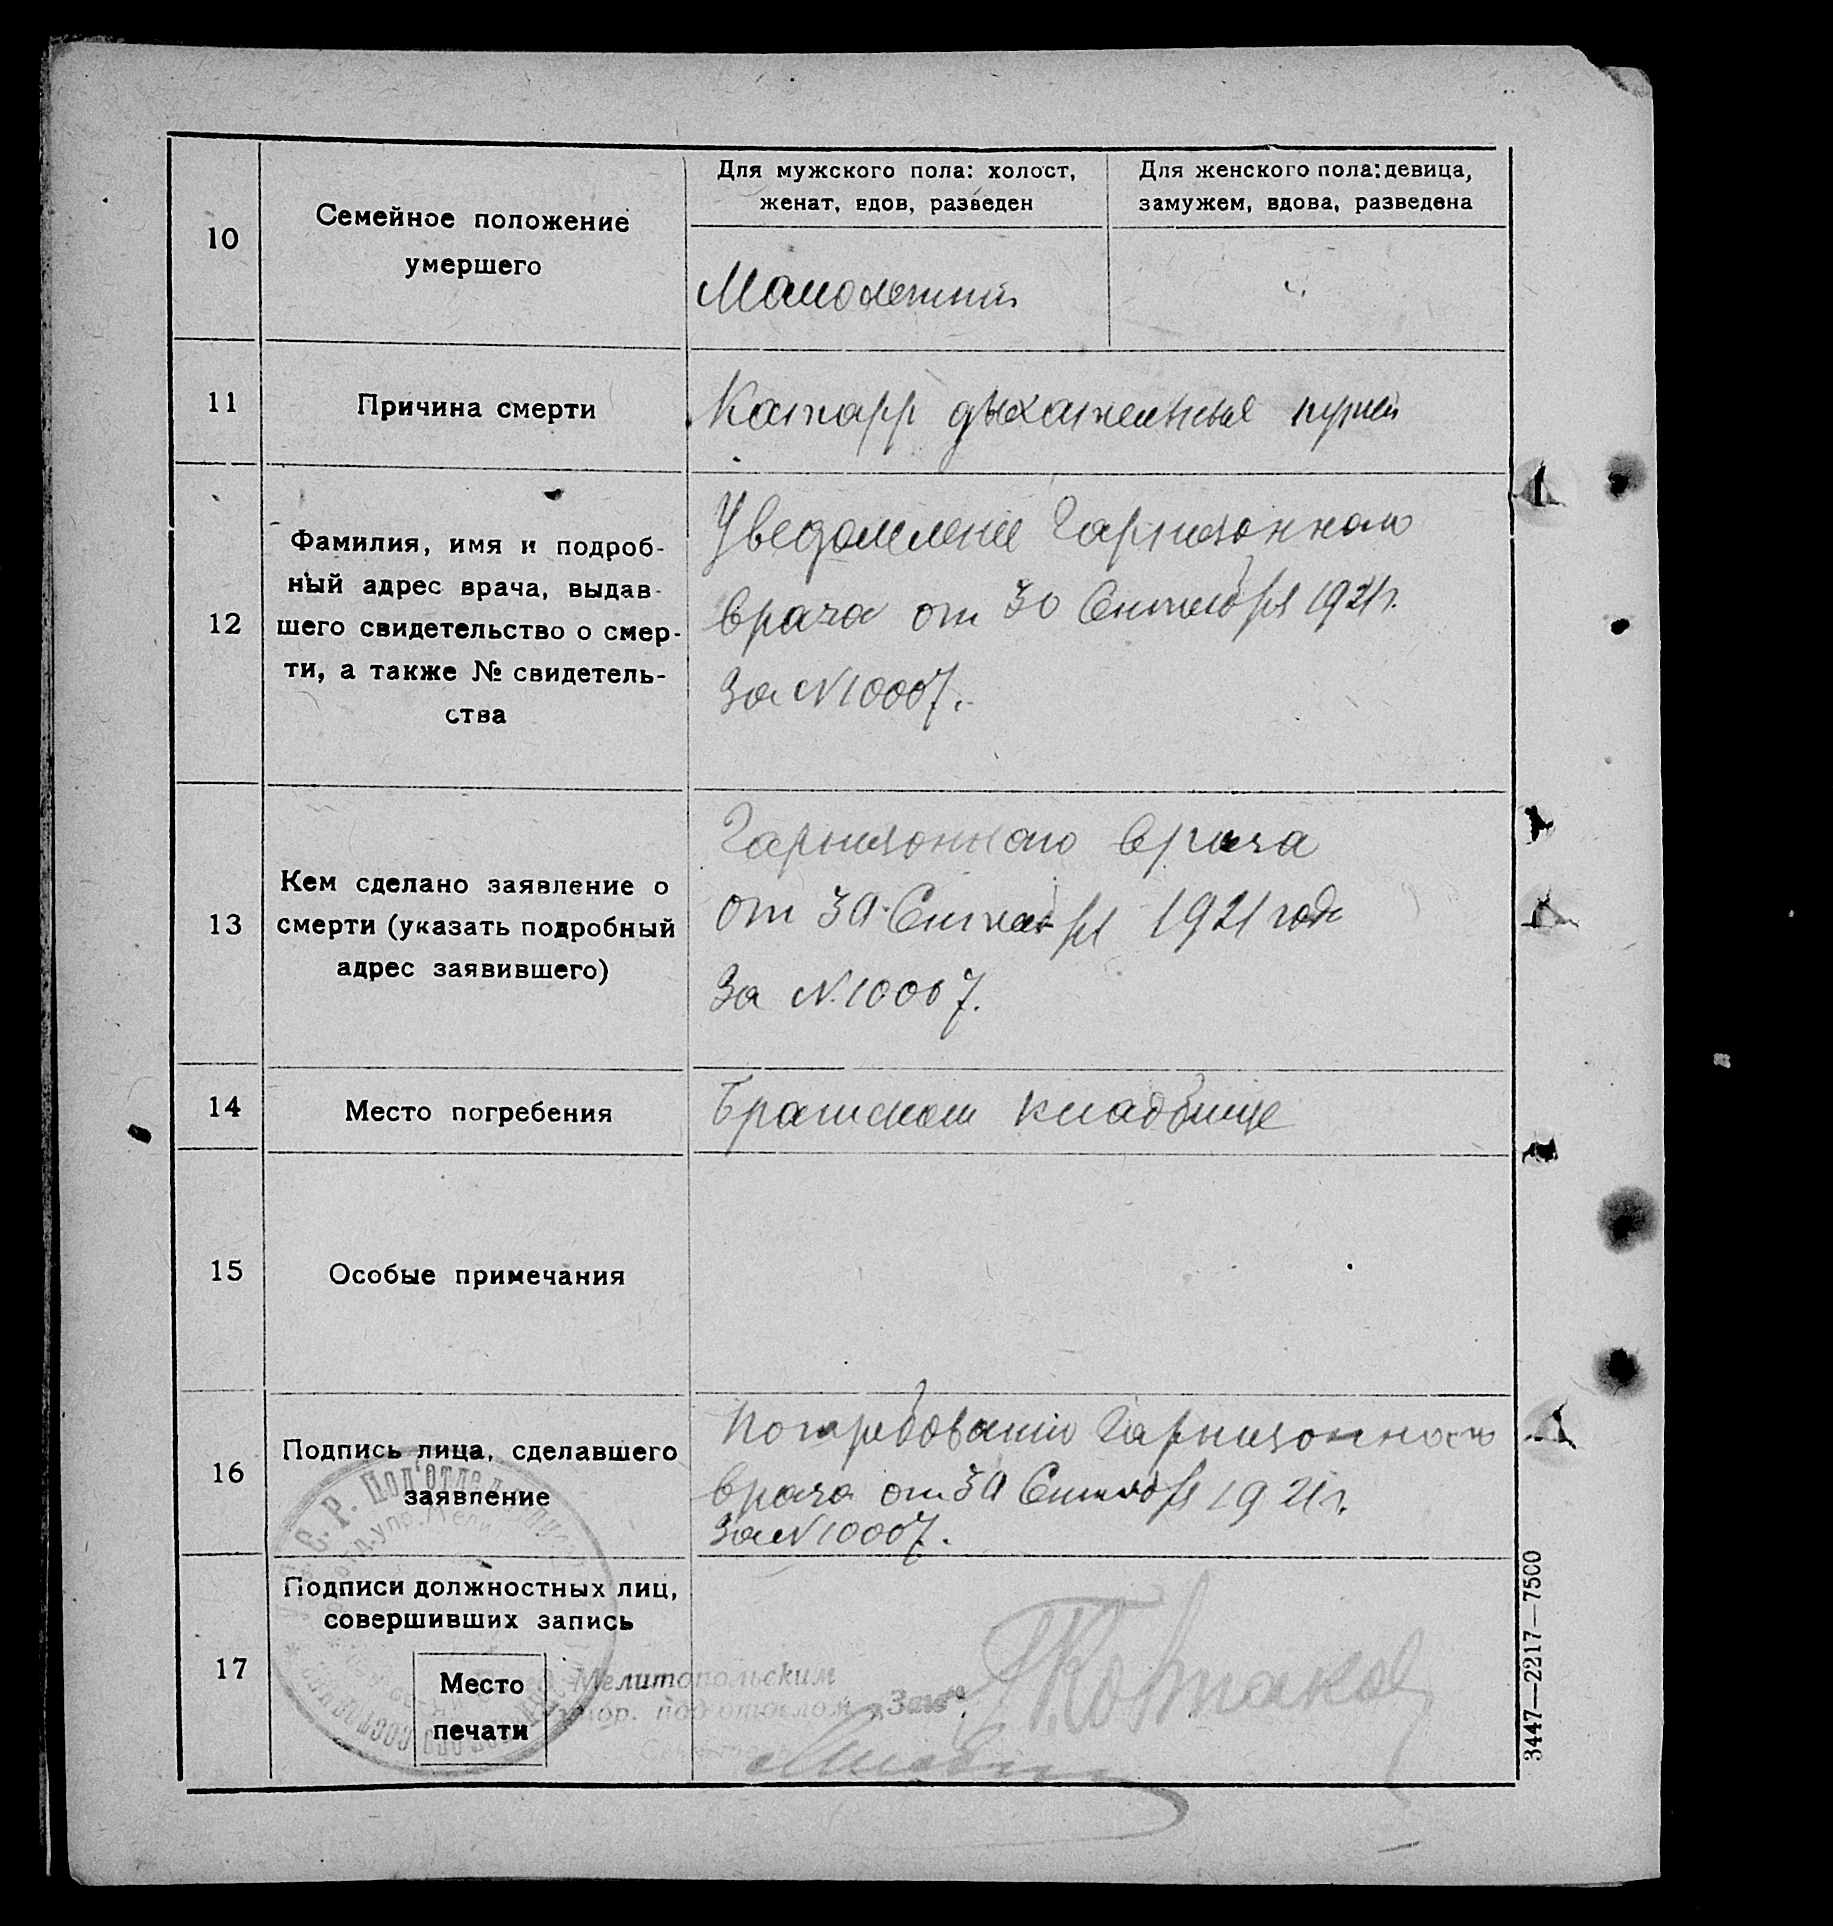 10
Семейное положение
умершего
Для мужского пола: холост,
женат, вдов, разведен
Для женского пола: девица,
замужем, вдова, разведена
Малолетний
11
Причина смерти
Катарр дыхательные путей
12
Фамилия, имя и подроб-
ный адрес врача, выдав-
шего свидетельство о смер-
ти, а также № свидетель-
ства
Уведомление Гарнизонного
врача от 30 Сентября 1921 г.
за N 10007.
13
Кем сделано заявление о
смерти (указать подробный
адрес заявившего)
Гарнизонного врача
от 30 Сентября 1921 года
За N. 10007.
14
Место погребения
Братском кладбище
15
Особые примечания
16
Подпись лица, сделавшего
заявление
По требованию Гарнизонного
врача от 30 Сентября 1921 г.
За N 10007.
17
Подписи должностных лиц,
совершивших запись
Место
печати
Мелитопольским
под'отделом „Загс“
3447—2217—7500